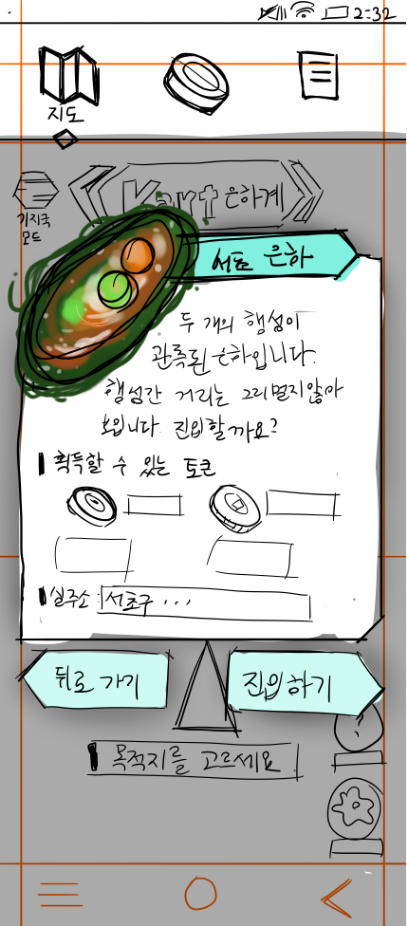 2:32
지도
Kart 은하계
기지국
모드
서초 은하
두 개의 행성이
관측된 은하입니다.
행성간 거리는 그리 멀지않아
보입니다. 진입할까요?
획득할 수 있는 토큰
실주소: 서초구 ...
뒤로 가기
진입하기
?
목적지를 고르세요